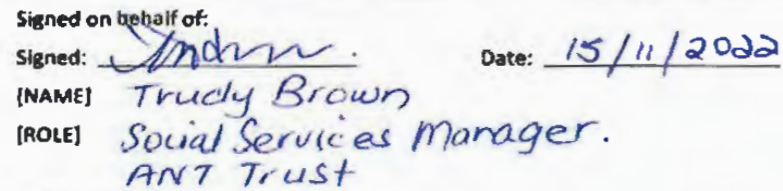 Signed on behalf of:
Signed: Date: 15/11/2022
[NAME] Trudy Brown
[ROLE] Social Services Manager.
ANT Trust